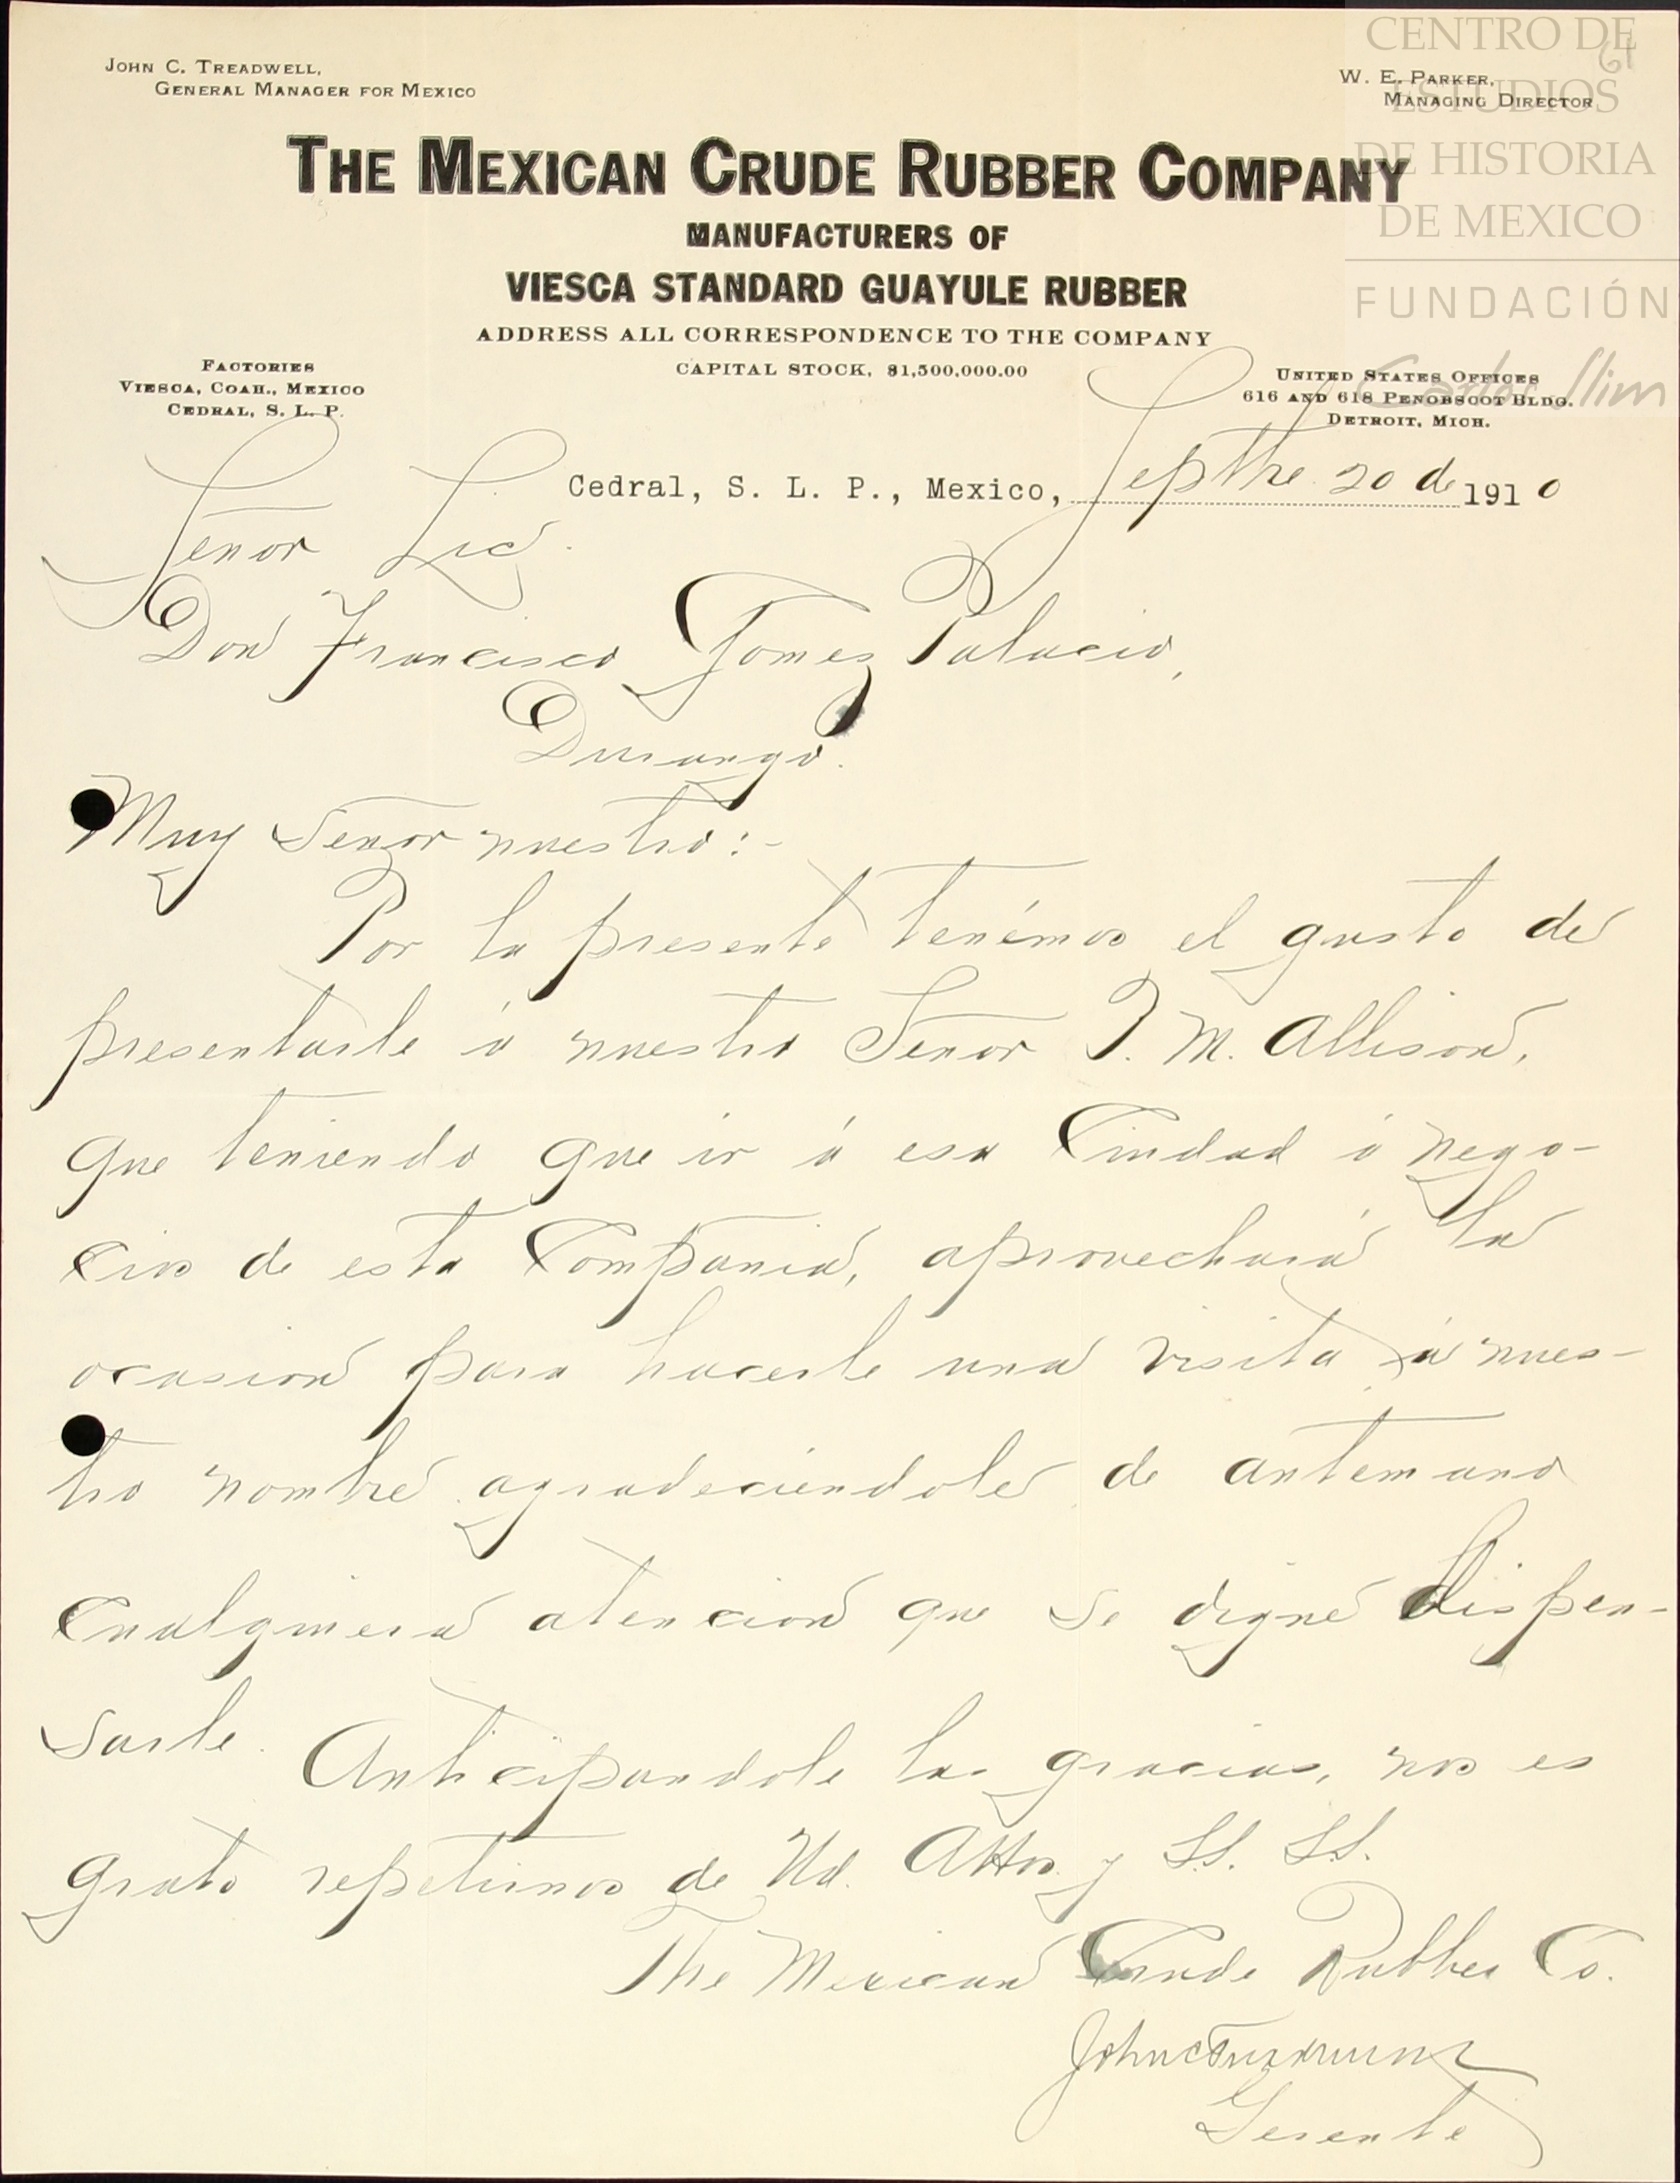 CENTRO DE
ESTUDIOS
DE HISTORIA
DE MEXICO
FUNDACIÓN
Carlos Slim
61
JOHN C. TREADWELL,
GENERAL MANAGER FOR MEXICO
W. E. PARKER,
MANAGING DIRECTOR
THE MEXICAN CRUDE RUBBER COMPANY
MANUFACTURERS OF
VIESCA STANDARD GUAYULE RUBBER
ADDRESS ALL CORRESPONDENCE TO THE COMPANY
CAPITAL STOCK, $1,500,000.00
FACTORIES
VIESCA, COAH., MEXICO
CEDRAL, S. L. P.
UNITED STATES OFFICES
616 AND 618 PENOBSCOT BLDG.
DETROIT, MICH.
Cedral, S. L. P., Mexico, Septbre 20 de 1910
Señor Lic.
Don Francisco Gomez Palacio,
Durango.
Muy Señor nuestro:-
Por la presente tenémos el gusto de
presentarle á nuestro Señor J. M. Allison,
que teniendo que ir á esa Ciudad á nego-
cios de esta Compania, aprovechará la
ocasion para hacerle una visita á nues-
tro nombre agradeciendole de antemano
cualquiera atencion que se digne dispen-
sarle. Anticipandole las gracias, nos es
grato repetirnos de Ud. Attos. y S.S. S.S.
The Mexican Crude Rubber Co.
John C Treadwell
Gerente